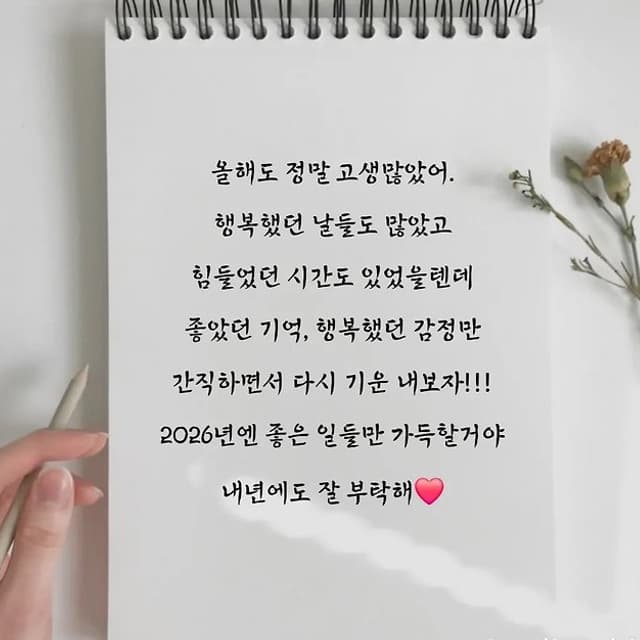 올해도 정말 고생많았어.
행복했던 날들도 많았고
힘들었던 시간도 있었을텐데
좋았던 기억, 행복했던 감정만
간직하면서 다시 기운 내보자!!!
2026년엔 좋은 일들만 가득할거야
내년에도 잘 부탁해❤️